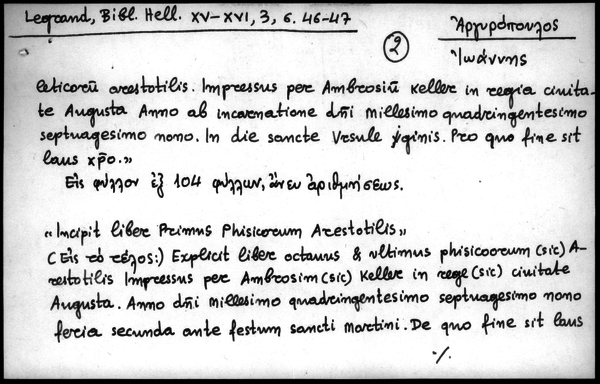 Legrand, Bibl. Hell. XV-XVI, 3, σ. 46-47
②
Ἀργυρόπουλος
Ἰωάννης
leticorū arestotilis. Impressus per Ambrosiū Keller in regia ciuita-
te Augusta Anno ab incarnatione dn̄i millesimo quadringentesimo
septuagesimo nono. In die sancte Vrsule v̄ginis. Pro quo fine sit
laus xp̄o.»
Εἰς φύλλον ἐξ 104 φύλλων, ἄνευ ἀριθμήσεως.
«Incipit liber Primus Phisicorum Arestotilis»
(Εἰς τὸ τέλος:) Explicit liber octauus & vltimus phisicoorum (sic) A-
restotilis Impressus per Ambrosim (sic) Keller in rege (sic) ciuitate
Augusta. Anno dn̄i millesimo quadringentesimo septuagesimo nono
feria secunda ante festum sancti martini. De quo fine sit laus
./.